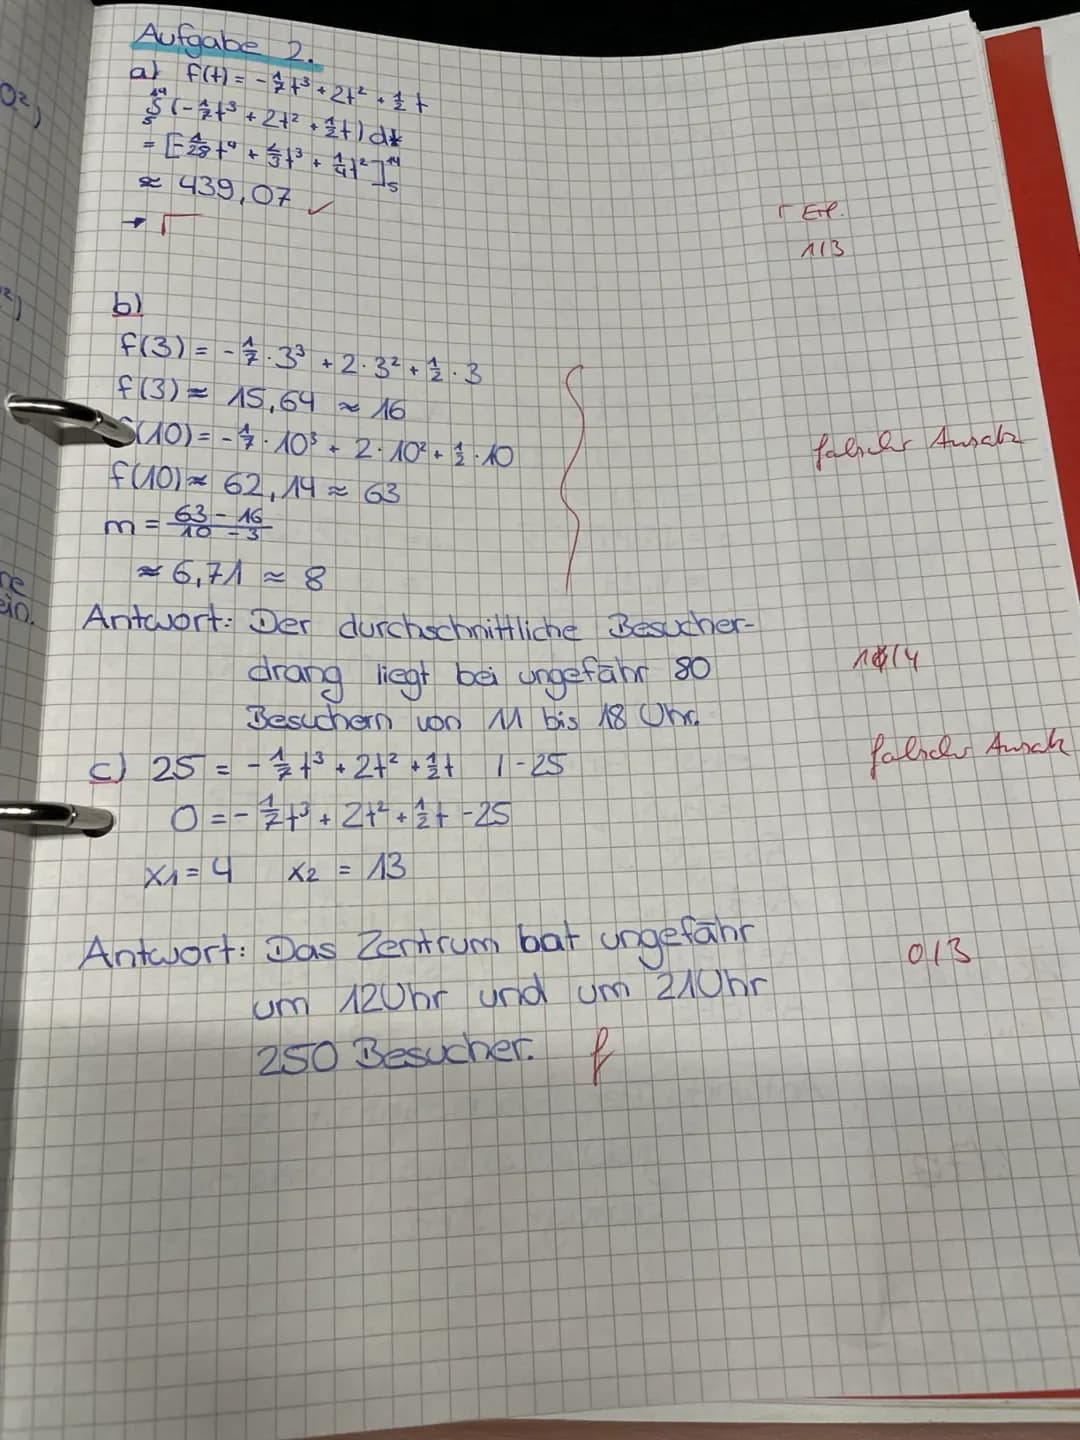 O²)
Aufgabe 2.
a) f(t) = -1/7 t³ + 2t² + 1/2 t
∫₅¹⁴ (-1/7 t³ + 2t² + 1/2 t) dt
= [-1/28 t⁴ + 2/3 t³ + 1/4 t²]₅¹⁴
≈ 439,07 ✓
→ Γ
Γ Erl.
1/3
b)
f(3) = -1/7 · 3³ + 2 · 3² + 1/2 · 3
f(3) ≈ 15,64 ≈ 16
f(10) = -1/7 · 10³ + 2 · 10² + 1/2 · 10
falscher Ansatz
f(10) ≈ 62,14 ≈ 63
m = (63 - 16)/(10 - 3)
≈ 6,71 ≈ 8
ein.
Antwort: Der durchschnittliche Besucher-
drang liegt bei ungefähr 80
/4
Besuchern von 11 bis 18 Uhr.
c) 25 = -1/7 t³ + 2t² + 1/2 t | -25
falscher Ansatz
0 = -1/7 t³ + 2t² + 1/2 t - 25
x₁ = 4 x₂ = 13
Antwort: Das Zentrum hat ungefähr
0/3
um 12Uhr und um 21Uhr
250 Besucher. f